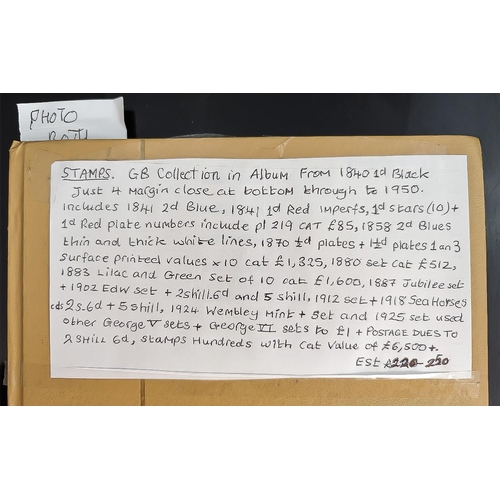 PHOTO
BOTH
STAMPS. GB Collection in Album From 1840 1d Black
Just 4 margin close at bottom through to 1950.
includes 1841 2d Blue, 1841 1d Red imperfs, 1d stars (10) +
1d Red plate numbers include pl 219 CAT £85, 1858 2d Blues
thin and thick white lines, 1870 ½d plates + 1½d plates 1 an 3
surface printed values x 10 cat £1,325, 1880 set cat £512,
1883 Lilac and Green set of 10 cat £1,600, 1887 Jubilee set
+ 1902 Edw set + 2shill.6d and 5 shill, 1912 set + 1918 Sea Horses
cds 2s.6d + 5 shill, 1924 Wembley mint + set and 1925 set used
other George V sets + George VI sets to £1 + POSTAGE DUES TO
2 SHILL 6d, stamps Hundreds with cat value of £6,500+.
EST 250